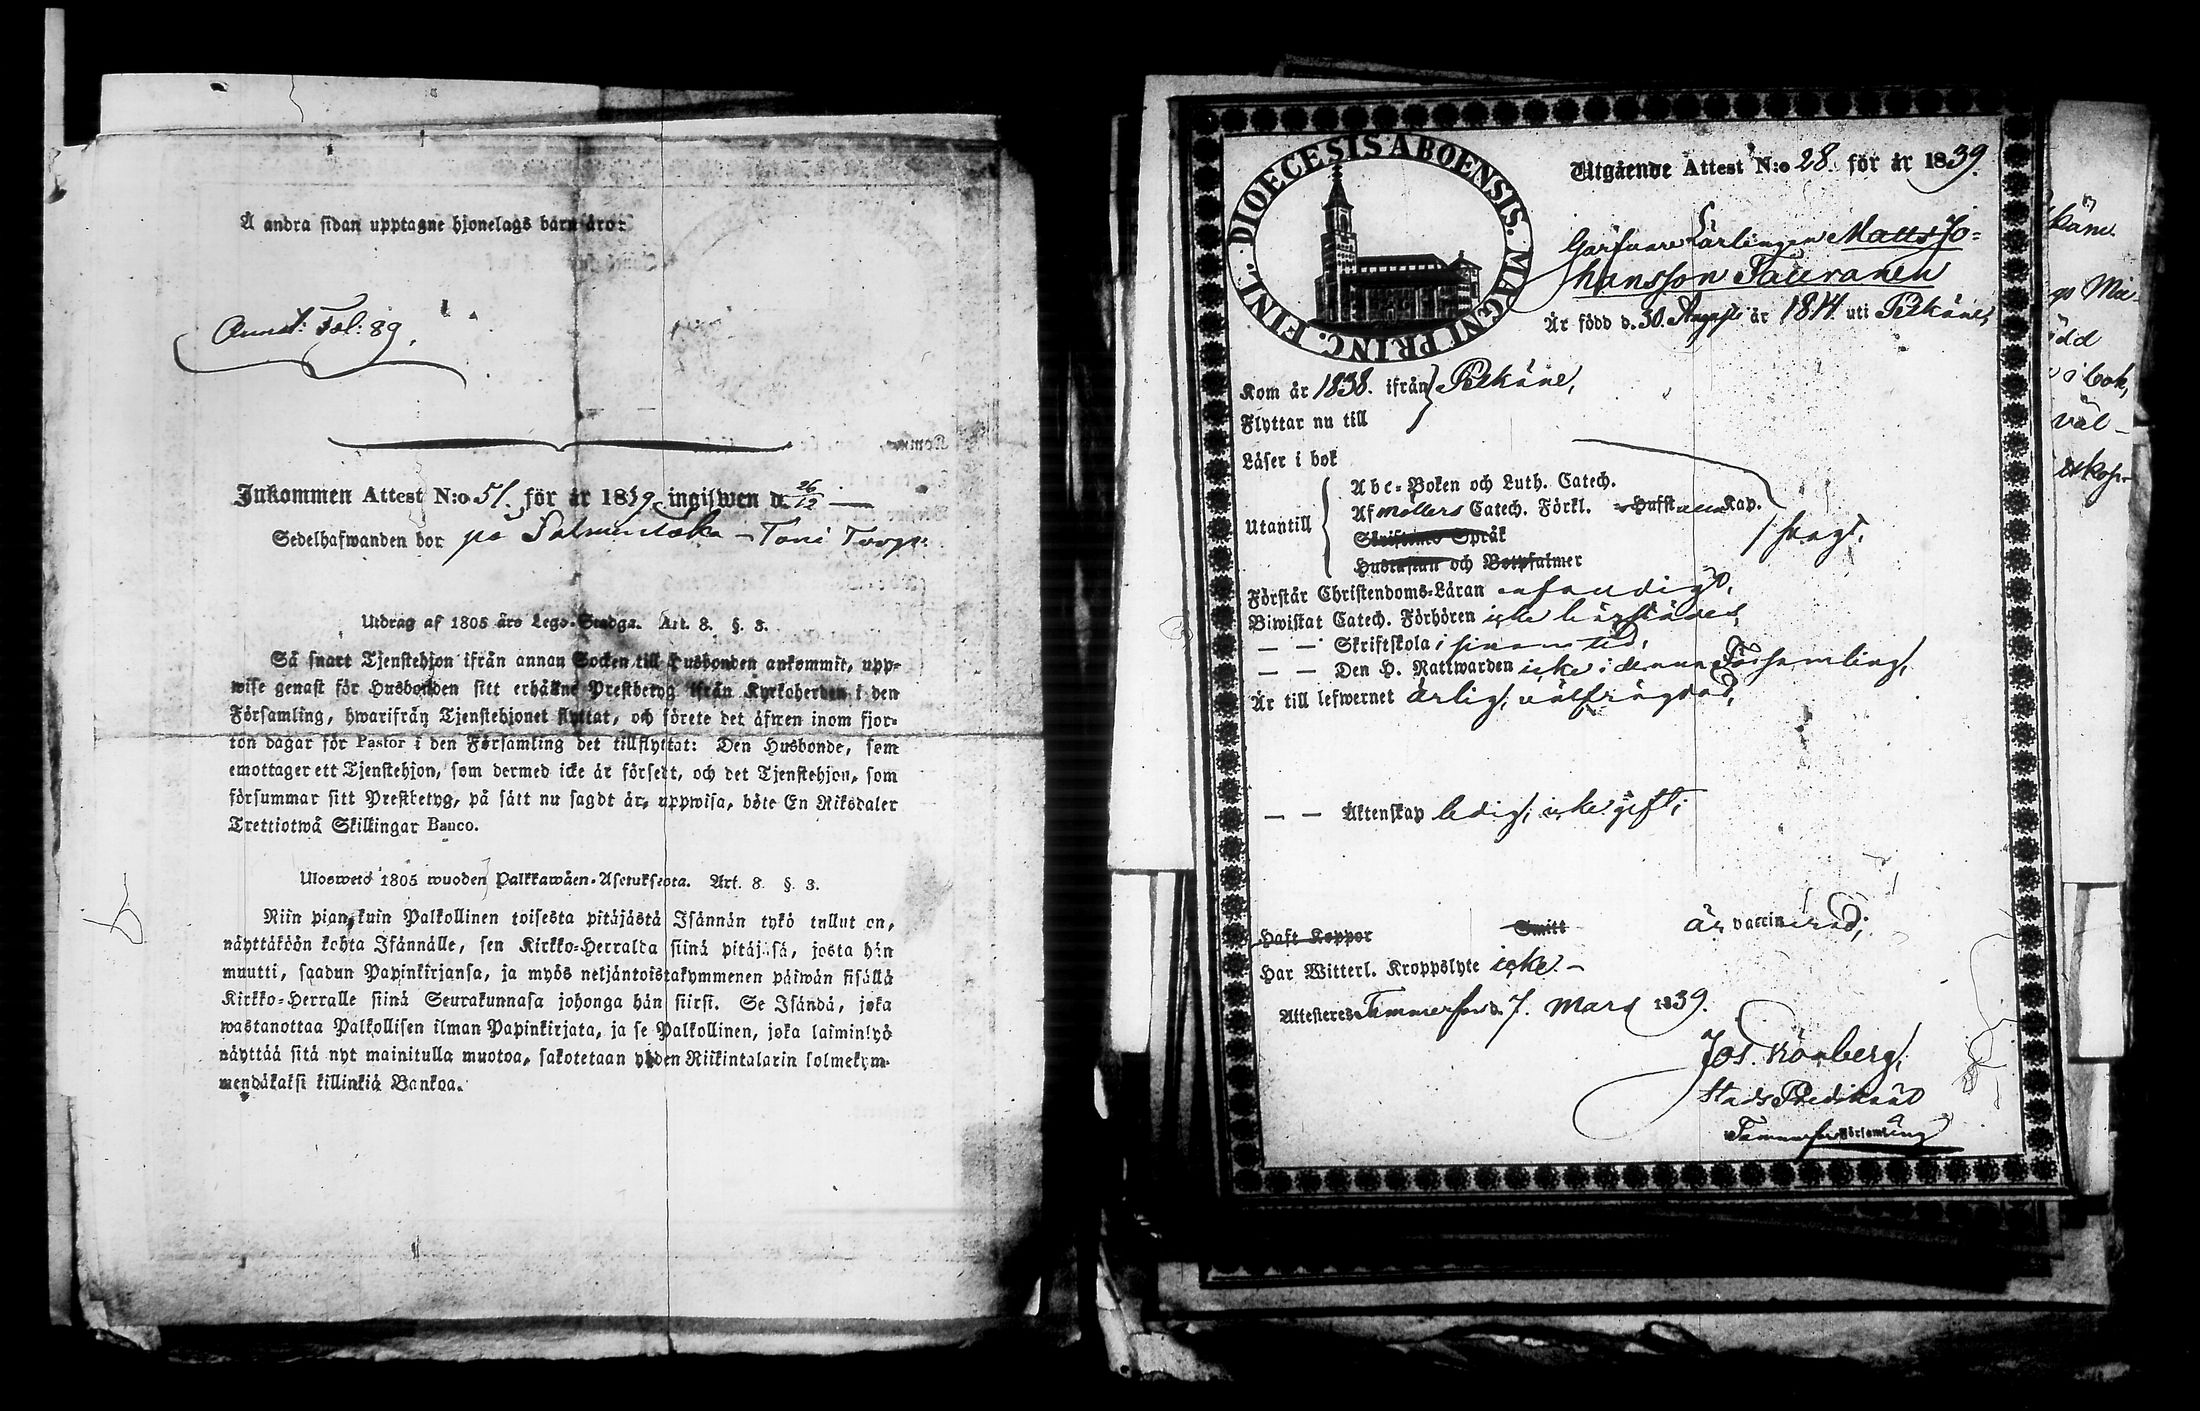 Å andra sidan upptagne hjonelags barn äro:
Annot: Fol: 89.
Inkommen Attest N:o 51. för år 1839 ingifwen d. 26/12
Sedelhafwanden bor på Salmentaka - Toni Torp.
Utdrag af 1805 års Lego-Stadga. Art. 8. §. 3.
Så snart Tjenstehjon ifrån annan Socken till Husbonden ankommit, upp-
wise genast för Husbonden sitt erhållne Prestbetyg ifrån Kyrkoherden i den
Församling, hwarifrån Tjenstehjonet flyttat, och förete det äfwen inom fjor-
ton dagar för Pastor i den Församling det tillflyttat: Den Husbonde, som
emottager ett Tjenstehjon, som dermed icke är försedt, och det Tjenstehjon, som
försummar sitt Prestbetyg, på sätt nu sagdt är, uppwisa, böte En Riksdaler
Trettiotwå Skillingar Banco.
Uloswetö 1805 wuoden Palkkawäen-Asetuksesta. Art. 8. §. 3.
Niin pian, kuin Palkollinen toisesta pitäjästä Isännän tykö tullut on,
näyttäköön kohta Isännälle, sen Kirkko-Herralda siinä pitäjäsä, josta hän
muutti, saadun Papinkirjansa, ja myös neljäntoistakymmenen päiwän sisällä
Kirkko-Herralle siinä Seurakunnasa johonga hän siirsi. Se Isändä, joka
wastanottaa Palkollisen ilman Papinkirjata, ja se Palkollinen, joka laiminlyö
näyttää sitä nyt mainitulla muotoa, sakotetaan yhden Riikintalarin kolmekym-
mendäkaksi killinkiä Bankoa.
DIOECESIS ABOENSIS. MAGNI PRINC. FINL.
Utgående Attest N:o 28. för år 1839.
Garfware Lärlingen Matts Jo=
hansson Tauranen
Är född d. 30. Augusti år 1814 uti Pelkäne,
Kom år 1838. ifrån Pelkäne,
Flyttar nu till
Läser i bok
Utantill
Abc-Boken och Luth. Catech.
Af Möllers Catech. Förkl. Hufst Kap.
Språk
Hustaflan och Botpsalmer
Förstår Christendoms-Läran
Biwistat Catech. Förhören icke
— — Skriftskola i sinom tid,
— — Den H. Nattwarden icke i denna Församling,
Är till lefwernet ärlig, välfrägdad,
— — Äktenskap ledig, icke gift;
Haft Koppor Smitt är vaccinerad;
Har Witterl. Kroppslyte icke. -
Attesteres Tammerfors d. 7. Mars 1839.
Jos. Grönberg,
Stads Predikant
Tammerfors Församling